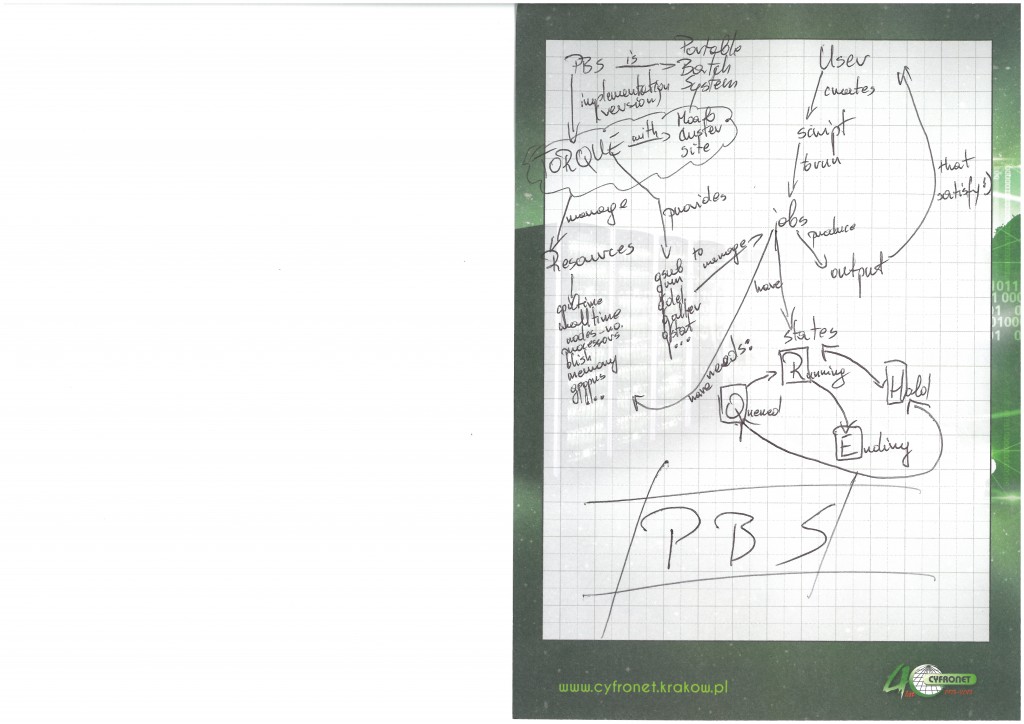 PBS is Portable
Batch
System
implementation
(version)
TORQUE with Moab
cluster
site
manage
provides
Resources
cputime
walltime
nodes-no.
processors
disk
memory
gpgpus
...
qsub
qrun
qdel
qalter
qstat
...
to manage
User
creates
script
to run
jobs
produce
output
that
satisfy :)
have
states
have needs:
Running
Hold
Queued
Ending
PBS
www.cyfronet.krakow.pl
40
lat
CYFRONET